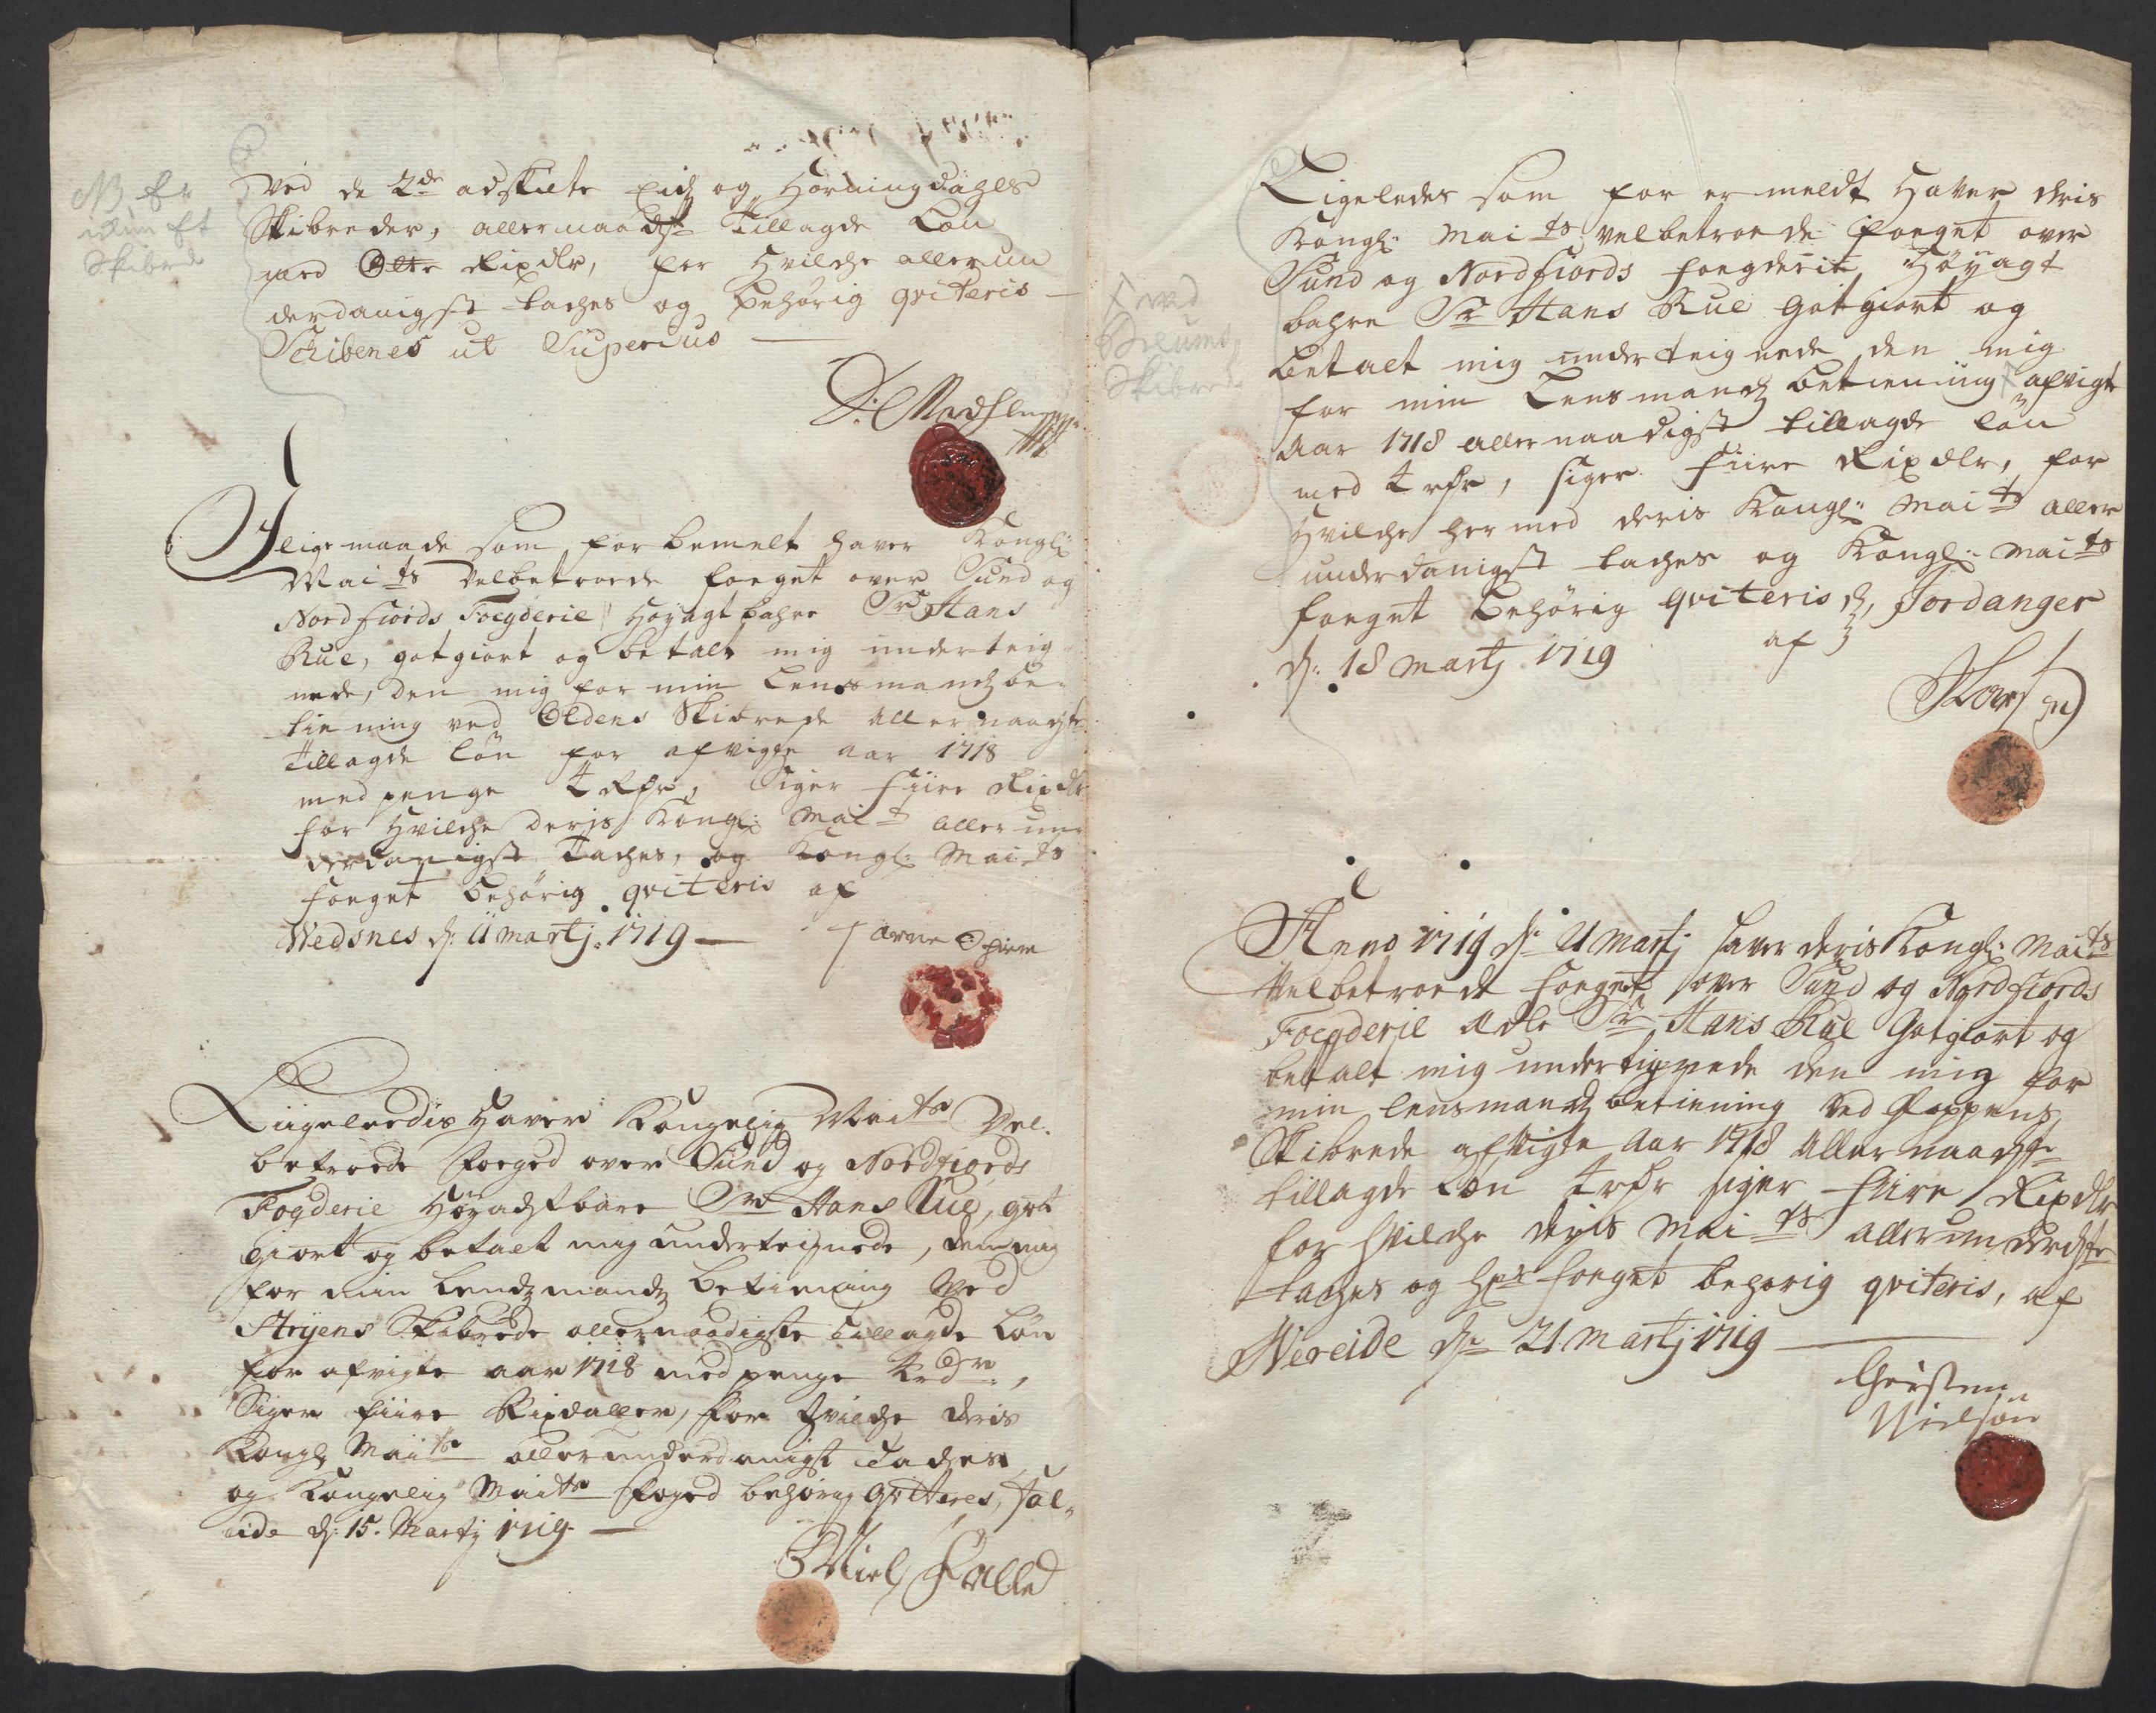 NB Er
ikun Et
Skibrede
Ved de 2de adskilte Eids og Horningdahls
Skibreder, allernaadst Tillagde Løn
med Otte Rixdlr, for Hvilche allerun
derdanigst taches og behørig qviteris
Schibenes ut Superius
D: Madsen
I lige maade som for bemelt haver Kongl:
Maits Velbetroede foeget over Sund og
Nordfiords Foegderie Høyagtbahre Sr Hans
Rue, gotgiort og betalt mig underteig
nede, den mig for min Lensmands be-
tiening ved Oldens Skibrede allernaadste
Tillagde løn for afvigte aar 1718
med penge 4 Rdr, Siger fiire Rixdlr
for Hvilche deris Kongl: Mait allerun
derdanigst Taches, og Kongl: Maits
foeget behørig qviteris af
Wedsnes d: 11 Martj: 1719
Arne
Liigeleedis Haver Kongelig Maits Vel-
betroede foeged over Sund og Nordfiords
Fogderie Høyachtbare Sr Hans Rue, got
giort og betalt mig underteignede, den mig
for min Lendzmandz betiening Ved
Stryens Skibrede allernaadigste tillagde Løn
for afvigte aar 1718 med penge 4 rdr,
Siger fiire Rixdaller, for hvilche deris
Kongl Maits allerunderdanigst taches
og Kongelig Maits foged behørig qviteres, Fal-
eide d: 15. Martj 1719.
Niels Falled
Ligeledes som for er meldt Haver deris
Kongl: Maits velbetroede foeget over
Sund og Nordfiords foegderie Høyagt
bahre Sr Hans Rue gotgiort og
betalt mig underteignede den mig
for min Lensmands betiening afvigte
Aar 1718 allernaadigst tillagde løn
med 4 rdr, siger fiire Rixdlr, for
Hvilche hermed deris Kongl: Maits aller
underdanigst taches og Kongl: Maits
foeget behørig qviteris, Fordanger
d: 18 Martj 1719 af
ved
Breums
Skibrede
Anno 1719 d: 21 Martj haver deris Kongl: Maits
Velbetroede foeget over Sund og Nordfiords
Foegderie Adle Sr Hans Rue Gotgiort og
betalt mig underteignede den mig for
min lensmands betiening Ved Gloppens
Skibrede afvigte Aar 1718 Allernaadste
tillagde Løn 4 rdr siger fiire Rixdlr
for hvilche deris Maits allerunderdste
taches og Hr foeget behørig qviteris, af
Wereide d: 21 Martj 1719
Christen
Nielsøn